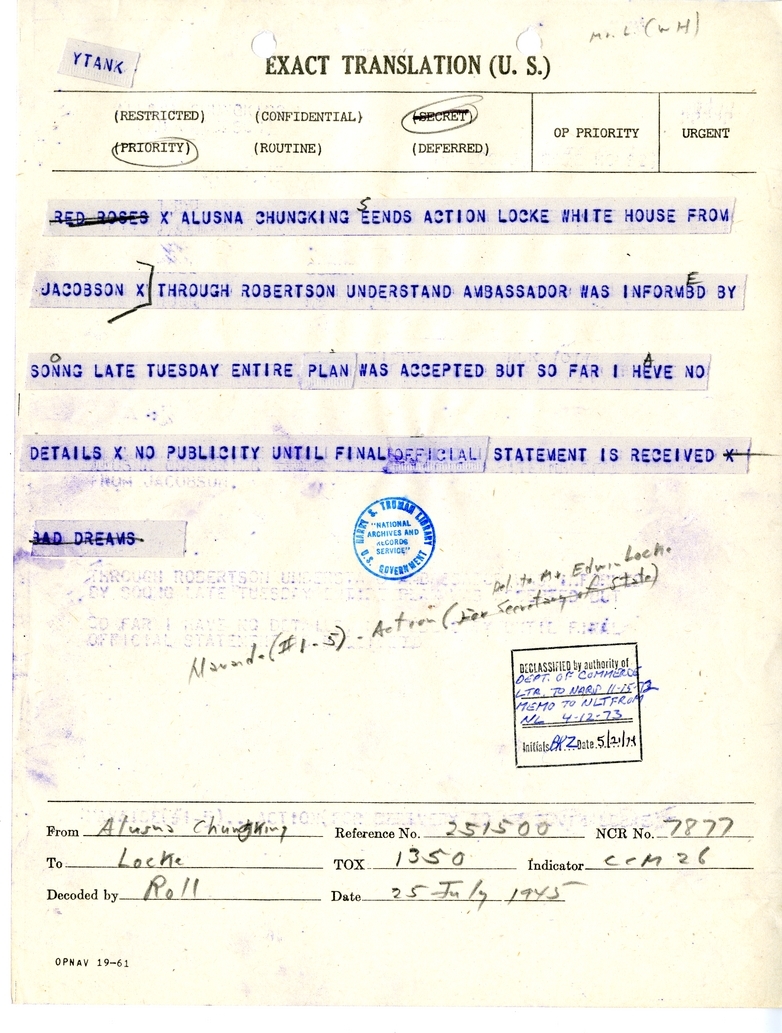 Mr. L (WH)
YTANK
EXACT TRANSLATION (U. S.)
(RESTRICTED) (CONFIDENTIAL) (SECRET)
OP PRIORITY URGENT
(PRIORITY) (ROUTINE) (DEFERRED)
RED ROSES X ALUSNA CHUNGKING EENDS ACTION LOCKE WHITE HOUSE FROM
S
JACOBSON X] THROUGH ROBERTSON UNDERSTAND AMBASSADOR WAS INFORMBD BY
E
SONNG LATE TUESDAY ENTIRE PLAN WAS ACCEPTED BUT SO FAR I HEVE NO
O A
DETAILS X NO PUBLICITY UNTIL FINAL OFFICIAL STATEMENT IS RECEIVED X
FROM JACOBSON.
BAD DREAMS
HARRY S. TRUMAN LIBRARY
"NATIONAL
ARCHIVES AND
RECORDS
SERVICE"
U.S. GOVERNMENT
THROUGH ROBERTSON
BY SOONG LATE TUESDAY
SO FAR I HAVE NO
OFFICIAL
Del. to Mr. Edwin Locke
(#1-5) - Action (For Secretary of State)
DECLASSIFIED by authority of
DEPT. OF COMMERCE
LTR. TO NARS 11-15-72
MEMO TO NLT FROM
NL 4-12-73
Initials Date 5/21/74
From Alusna Chungking Reference No. 251500 NCR No. 7877
To Locke TOX 1350 Indicator CCM 26
Decoded by Roll Date 25 July 1945
OPNAV 19-61